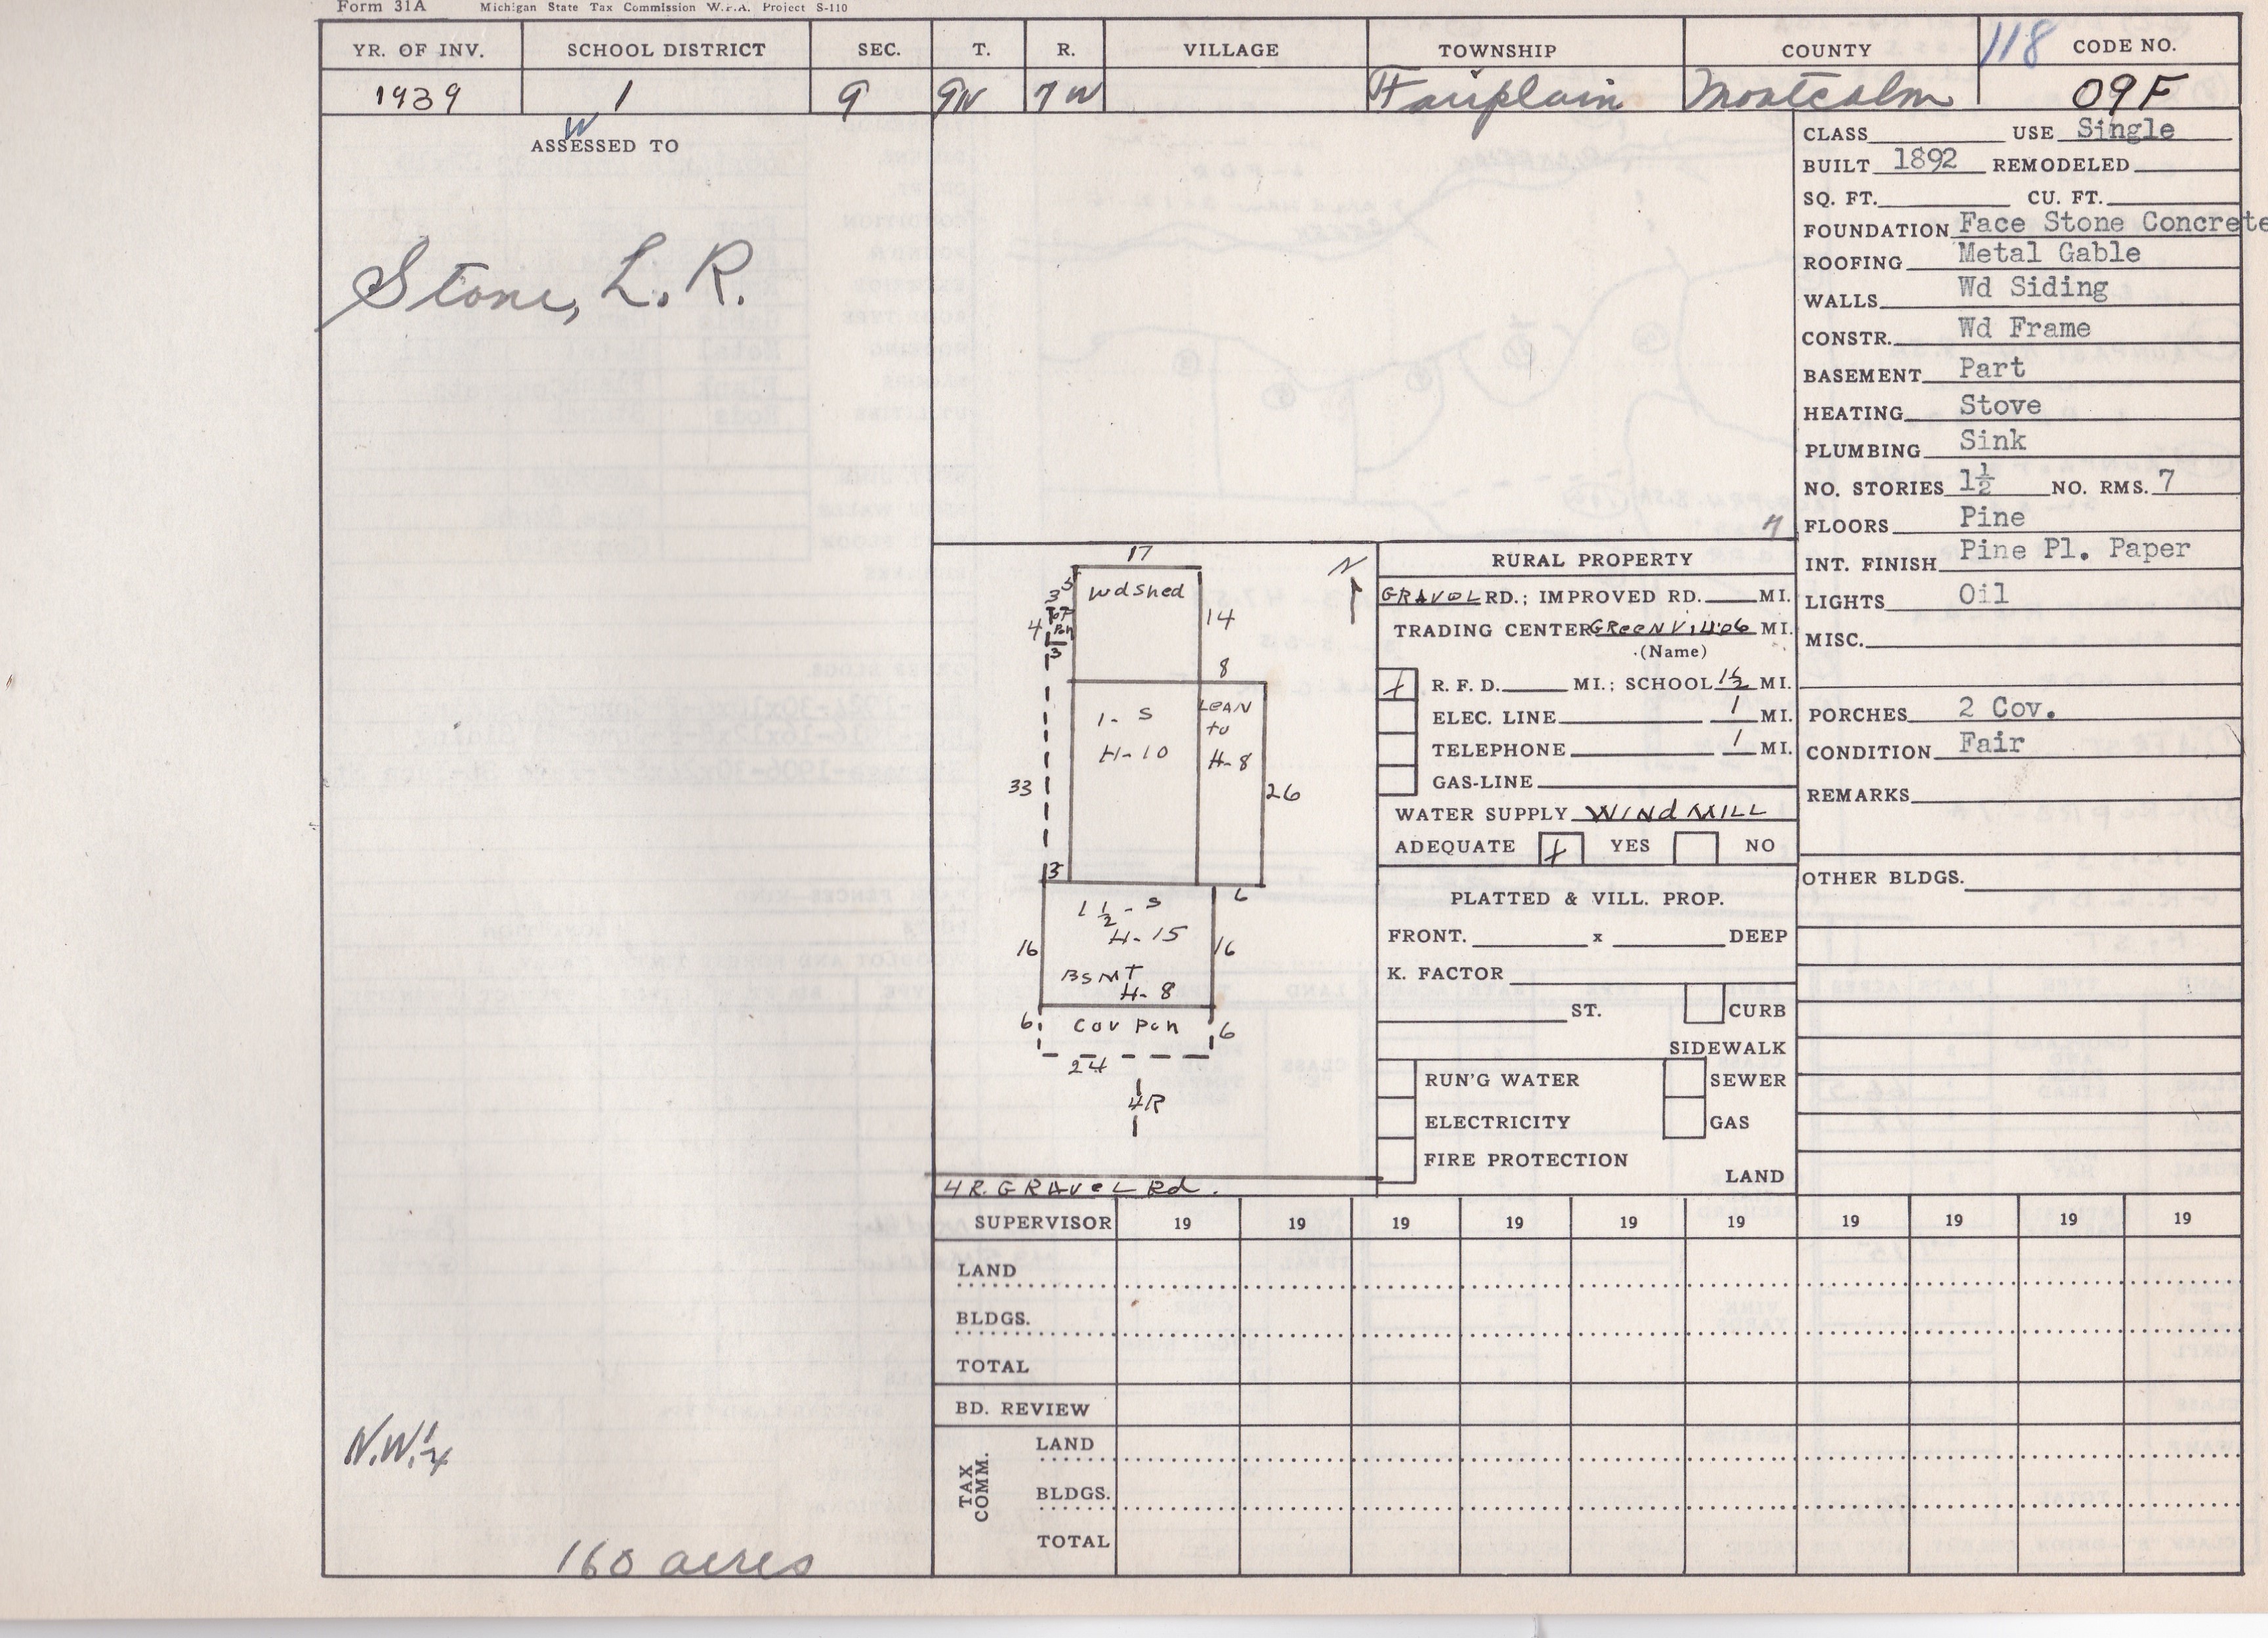 Form 31A Michigan State Tax Commission W.P.A. Project S-110
YR. OF INV. SCHOOL DISTRICT SEC. T. R. VILLAGE TOWNSHIP COUNTY 118 CODE NO.
1939 1 9 9N 7W Fairplain Montcalm 09F
W
ASSESSED TO
Stone, L. R.
N.W.¼
160 acres
CLASS USE Single
BUILT 1892 REMODELED
SQ. FT. CU. FT.
FOUNDATION Face Stone Concrete
ROOFING Metal Gable
WALLS Wd Siding
CONSTR. Wd Frame
BASEMENT Part
HEATING Stove
PLUMBING Sink
NO. STORIES 1½ NO. RMS. 7
FLOORS Pine
INT. FINISH Pine Pl. Paper
LIGHTS Oil
MISC.
PORCHES 2 Cov.
CONDITION Fair
REMARKS
OTHER BLDGS.
17
N
Wd Shed
5
3
4
Pch
3
14
8
1-S
H-10
LEAN
to
H-8
33
26
3
6
1½-S
H-15
16
16
BSMT
H-8
6
Cov Pch
6
24
4R
4R. GRAVEL Rd.
RURAL PROPERTY
GRAVEL RD.; IMPROVED RD. MI.
TRADING CENTER GReeNVille 6 MI.
(Name)
+ R. F. D. MI.; SCHOOL 1½ MI.
ELEC. LINE 1 MI.
TELEPHONE 1 MI.
GAS-LINE
WATER SUPPLY WINdMILL
ADEQUATE + YES NO
PLATTED & VILL. PROP.
FRONT. x DEEP
K. FACTOR
ST. CURB
SIDEWALK
RUN'G WATER SEWER
ELECTRICITY GAS
FIRE PROTECTION
LAND
SUPERVISOR 19 19 19 19 19 19 19 19 19 19
LAND
BLDGS.
TOTAL
BD. REVIEW
TAX COMM.
LAND
BLDGS.
TOTAL